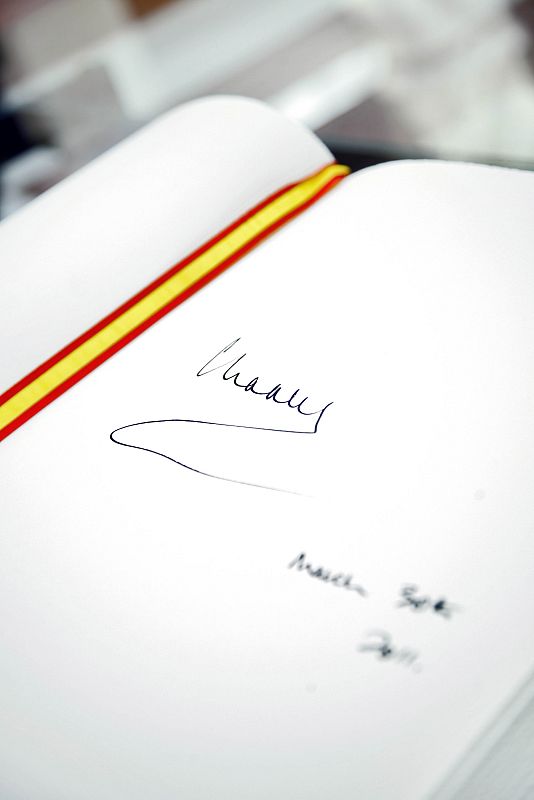 Charles
March 30th
2011.